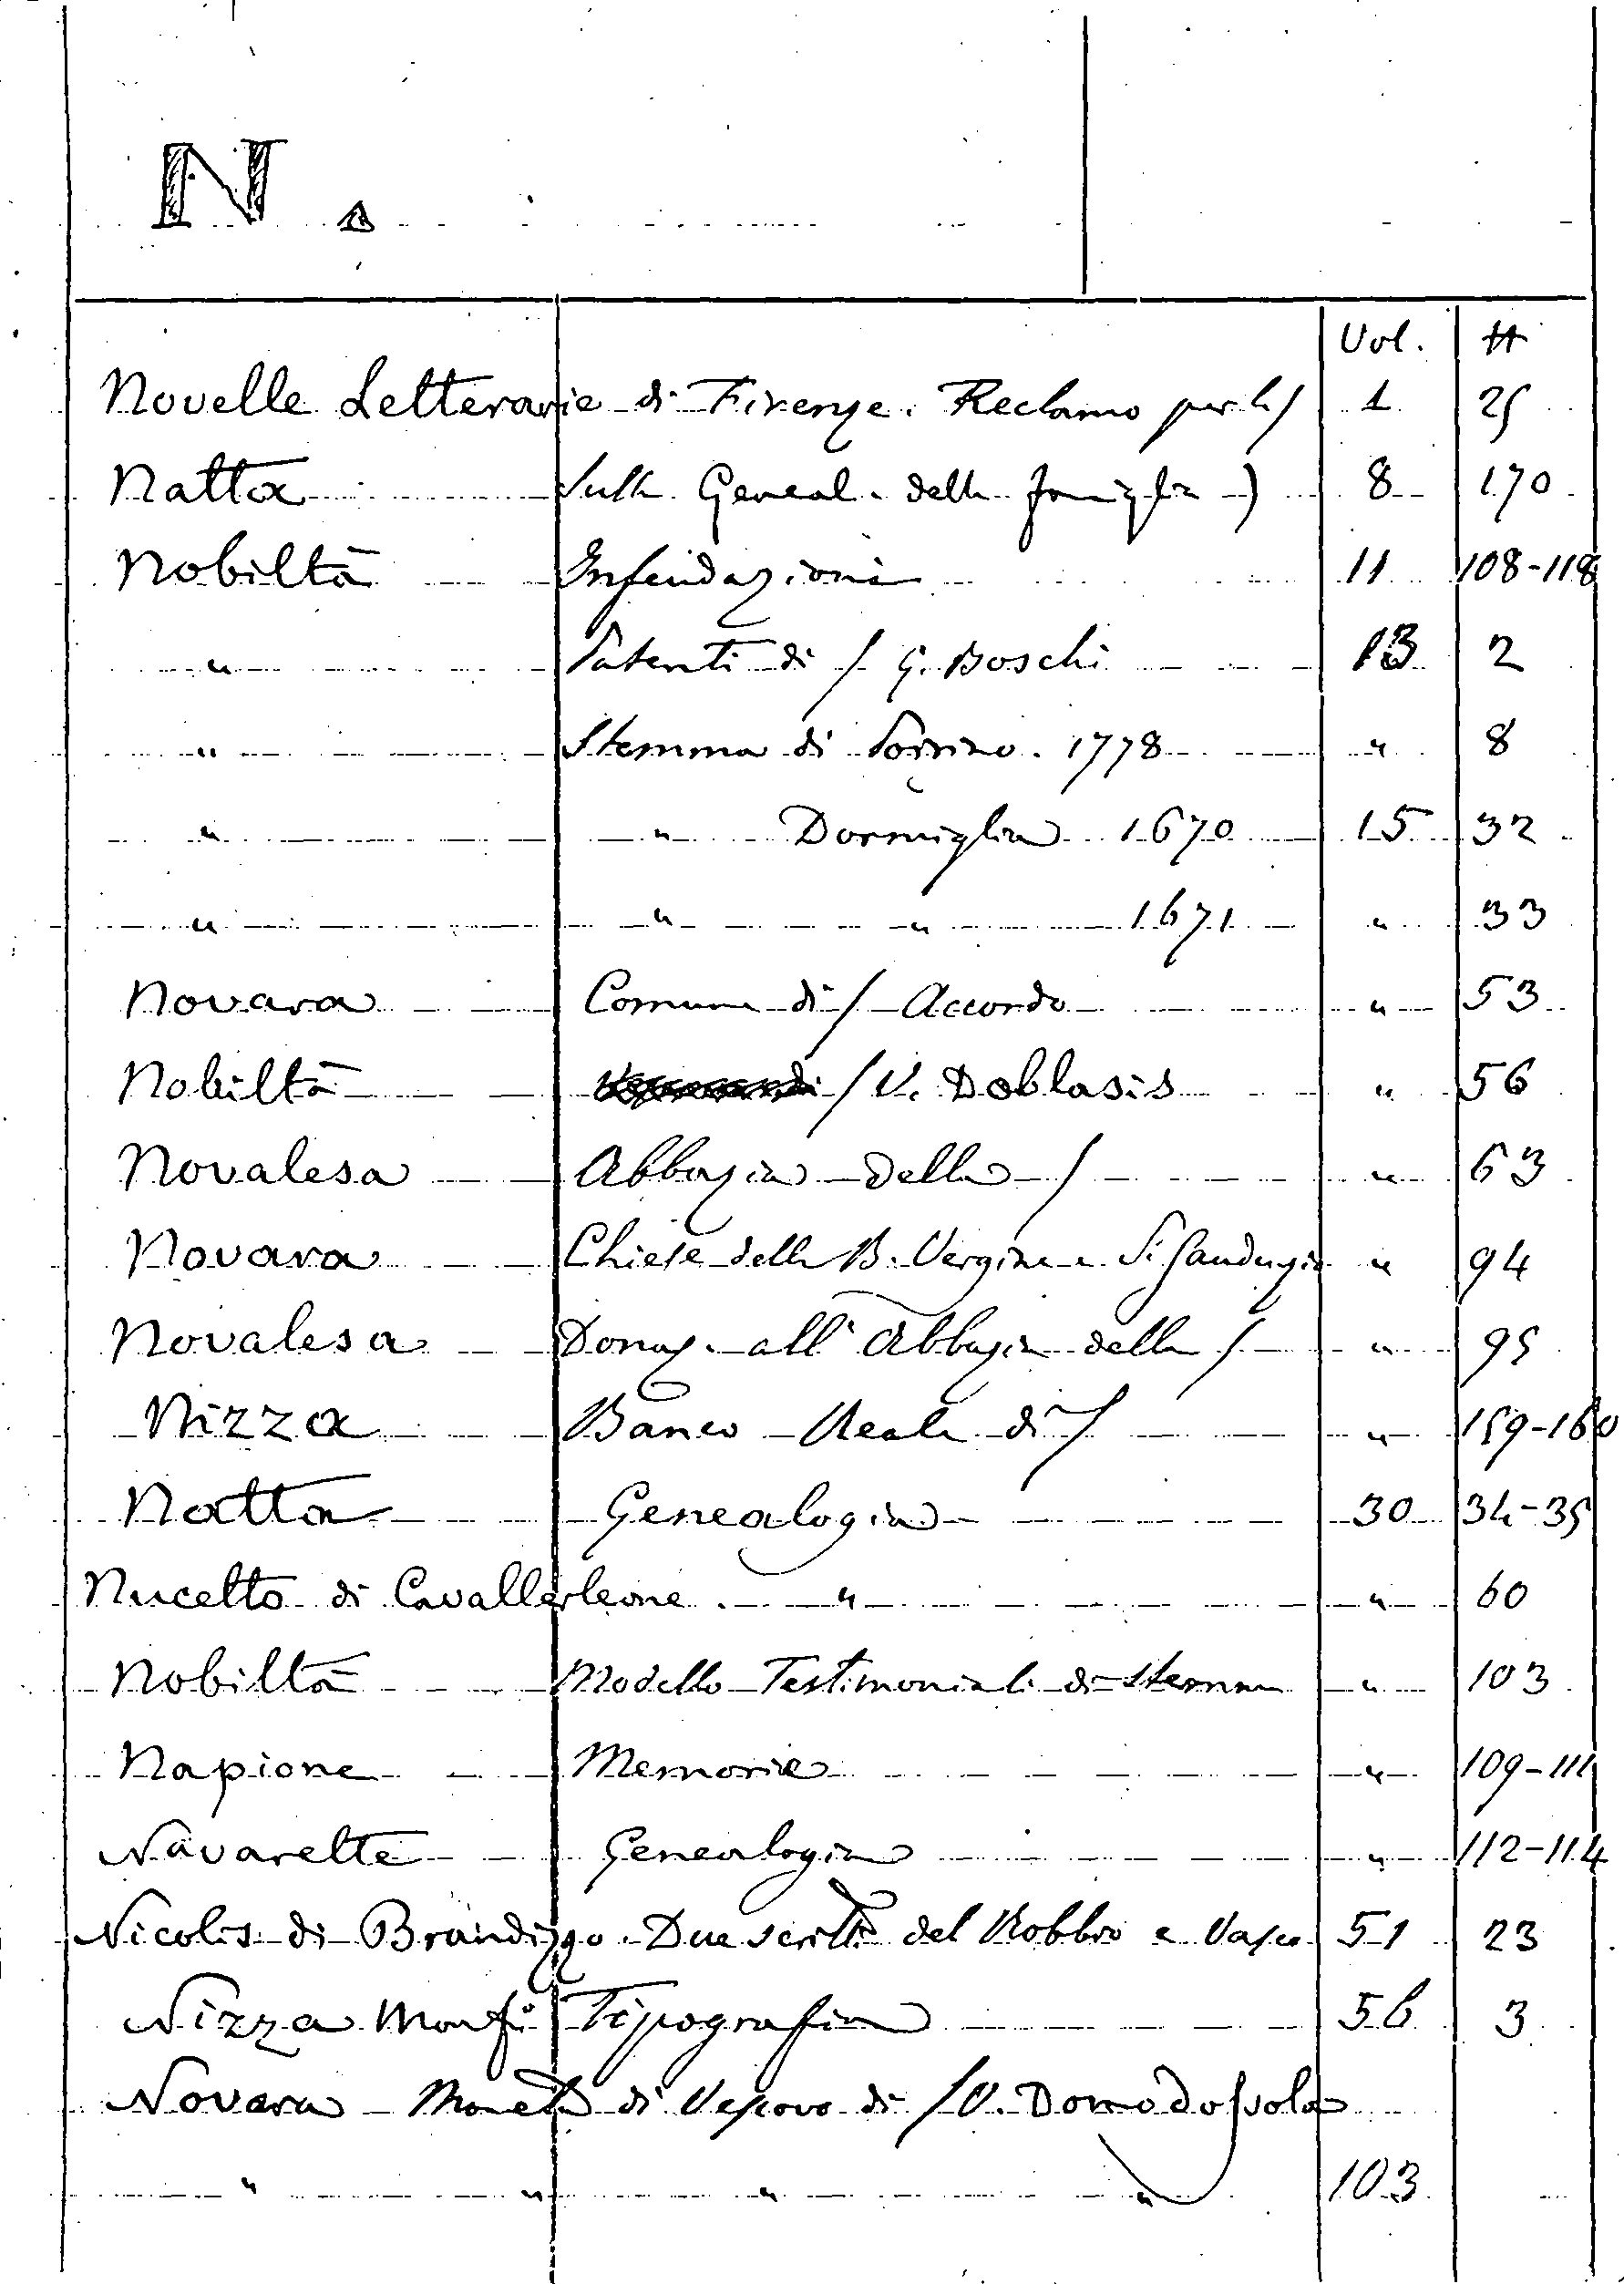 N.
Vol. #
Novelle Letterarie di Firenze. Reclamo per le/ 1 25
Natta Sulla Geneal. della famiglia ) 8 170
Nobiltà Infeudazioni 11 108-118
" Patenti di / G. Boschi 13 2
" Stemma di 1778 " 8
" " Dormiglia 1670 15 32
" " " 1671 " 33
Novara Comune di / Accordo " 53
Nobiltà / V. Doblasis " 56
Novalesa Abbazia della / " 63
Novara Chiese della B. Vergine e S. Gaudenzio " 94
Novalesa Donaz. all' Abbazia della / " 95
Nizza Banco Reale di / " 159-160
Natta Genealogia 30 34-35
Nucetto di Cavallerleone. " " 60
Nobiltà Modello Testimoniali di stemma " 103
Napione Memorie " 109-111
Navarette Genealogia " 112-114
Nicolis di Brandizzo. Due scritti del Robbio e Vasco 51 23
Nizza Monf.º Tipografia 56 3
Novara Moneta di Vescovo di / V. Domodossola
" " " " 103